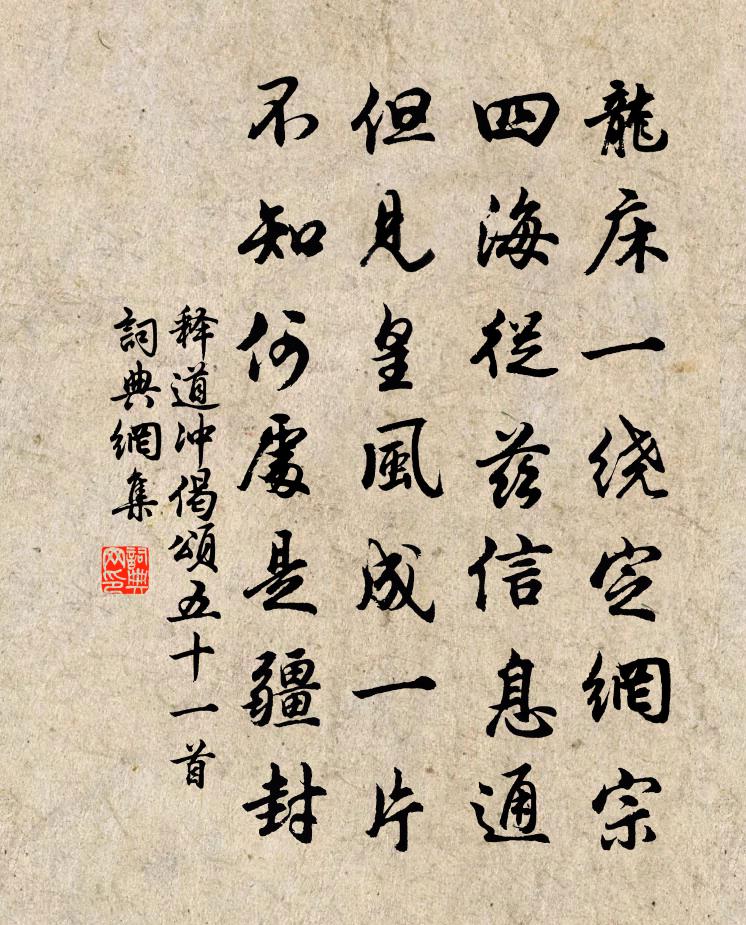 龍床一绕定網宗
四海從兹信息通
但見皇風成一片
不知何處是疆封
释道冲偈頌五十一首
詞典網集
詞典网印